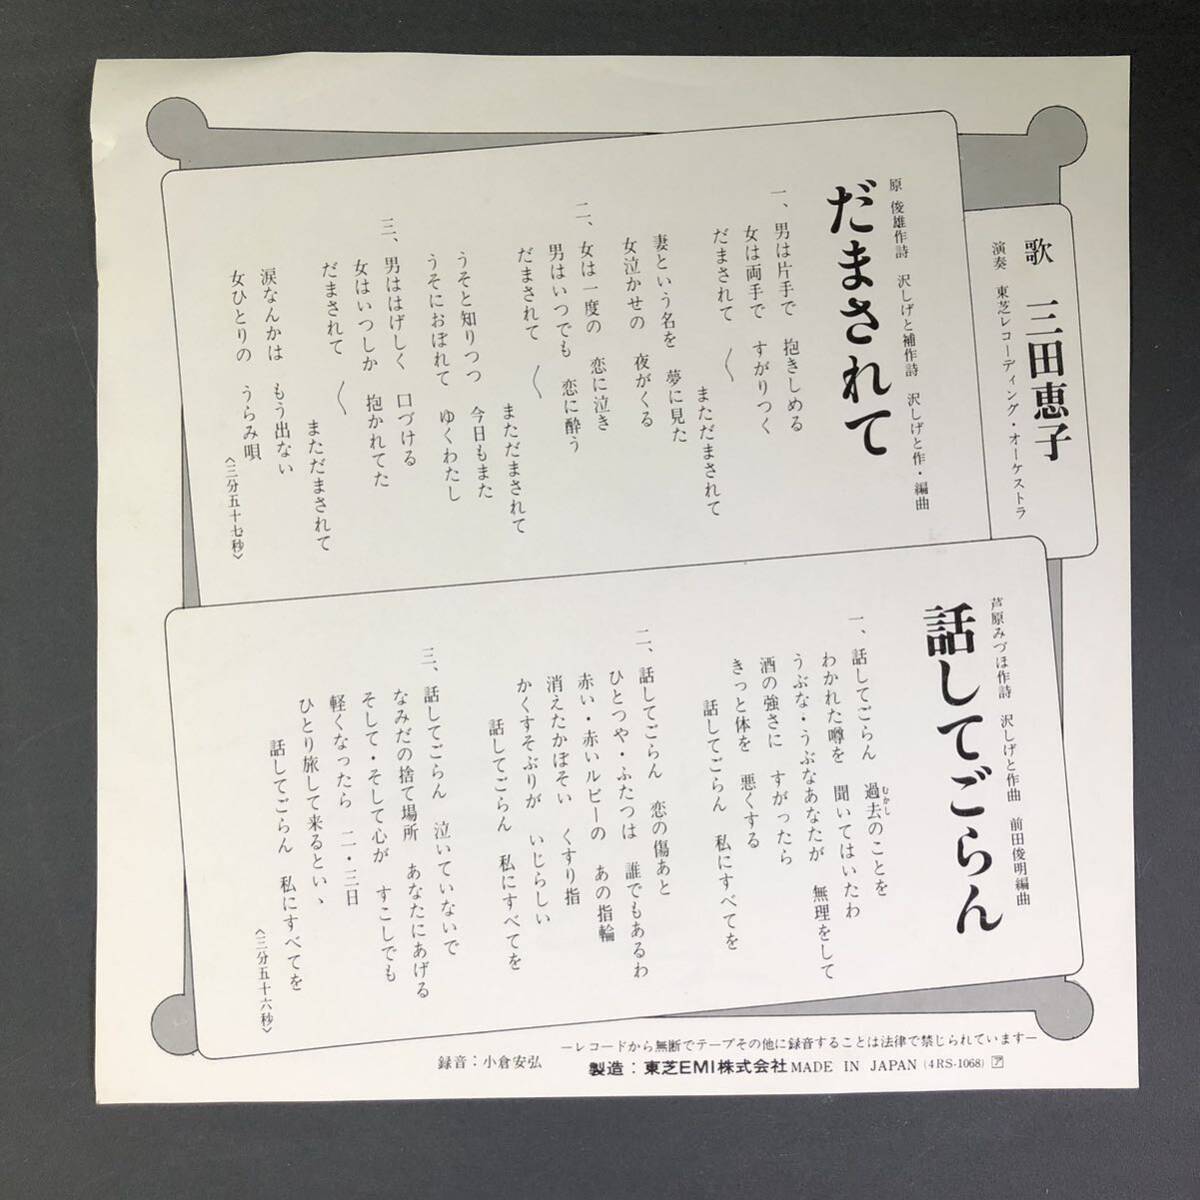 歌 三田恵子
演奏 東芝レコーディング・オーケストラ
だまされて
原 俊雄作詩 沢しげと補作詩 沢しげと作・編曲
一、男は片手で 抱きしめる
女は両手で すがりつく
だまされて 〱 まただまされて
妻という名を 夢に見た
女泣かせの 夜がくる
二、女は一度の 恋に泣き
男はいつでも 恋に酔う
だまされて 〱 まただまされて
うそと知りつつ 今日もまた
うそにおぼれて ゆくわたし
三、男ははげしく 口づける
女はいつしか 抱かれてた
だまされて 〱 まただまされて
涙なんかは もう出ない
女ひとりの うらみ唄
〈三分五十七秒〉
話してごらん
芦原みづほ作詩 沢しげと作曲 前田俊明編曲
一、話してごらん 過去のことを
むかし
わかれた噂を 聞いてはいたわ
うぶな・うぶなあなたが 無理をして
酒の強さに すがったら
きっと体を 悪くする
話してごらん 私にすべてを
二、話してごらん 恋の傷あと
ひとつや・ふたつは 誰でもあるわ
赤い・赤いルビーの あの指輪
消えたかぼそい くすり指
かくすそぶりが いじらしい
話してごらん 私にすべてを
三、話してごらん 泣いていないで
なみだの捨て場所 あなたにあげる
そして・そして心が すこしでも
軽くなったら 二・三日
ひとり旅して来るとい、
話してごらん 私にすべてを
〈三分五十六秒〉
—レコードから無断でテープその他に録音することは法律で禁じられています—
録音：小倉安弘
製造：東芝EMI株式会社 MADE IN JAPAN (4RS-1068) ア